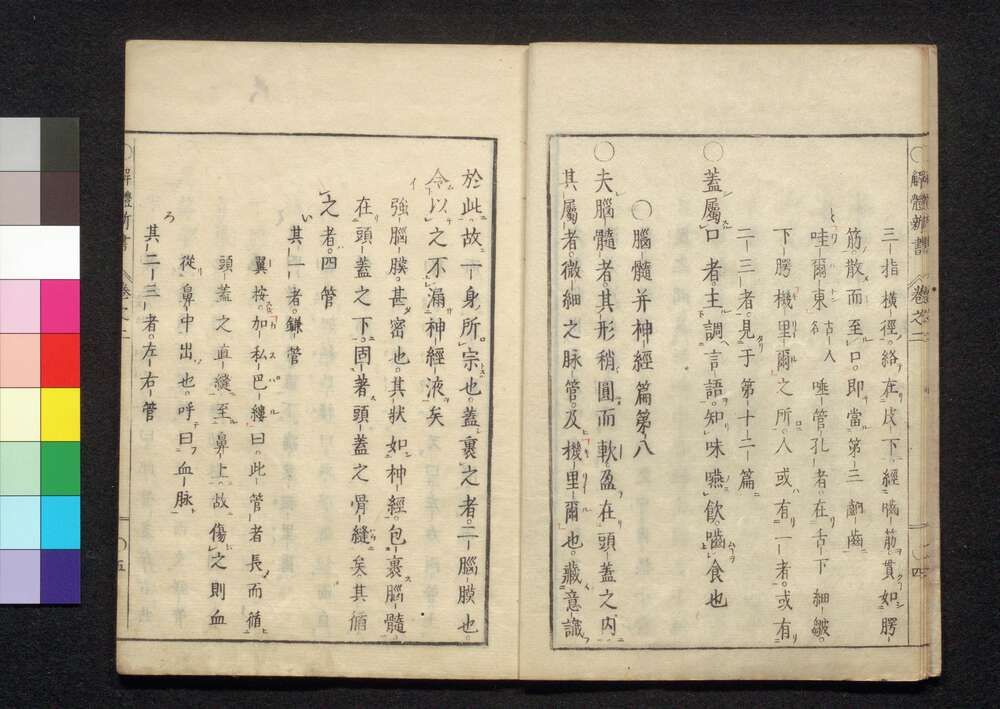 解體新書 卷之二
三指橫徑。絡在皮下。經腸筋。貫如腭
筋。散而至口。即當第三齗齒
哇爾東名人唾管孔者。在舌下細皺。
下腭機里爾之所。入或有一者。或有
二三者。見于第十二篇
○蓋屬口者。主調言語。知味嚥飲。嚙食也
○腦髓并神經篇第八
○夫腦髓者。其形稍圓而軟。盈在頭蓋之內
其屬者。微細之脉管。及機里爾也。藏意識
於此。故一身所宗也。蓋裹之者。二腦膜也。
令以之不漏神經液矣
強腦膜。甚密也。其狀如神經。包裹腦髓
在頭蓋之下。固著頭蓋之骨縫矣。其循
之者。四管
い
其一者。鎌管
翼按。加私巴縷曰。此管者長而循
頭蓋之直縫。至鼻上。故傷之則血
從鼻中出也。呼曰血脉
ろ
其二三者。左右管
○解體新書 卷之二
○五